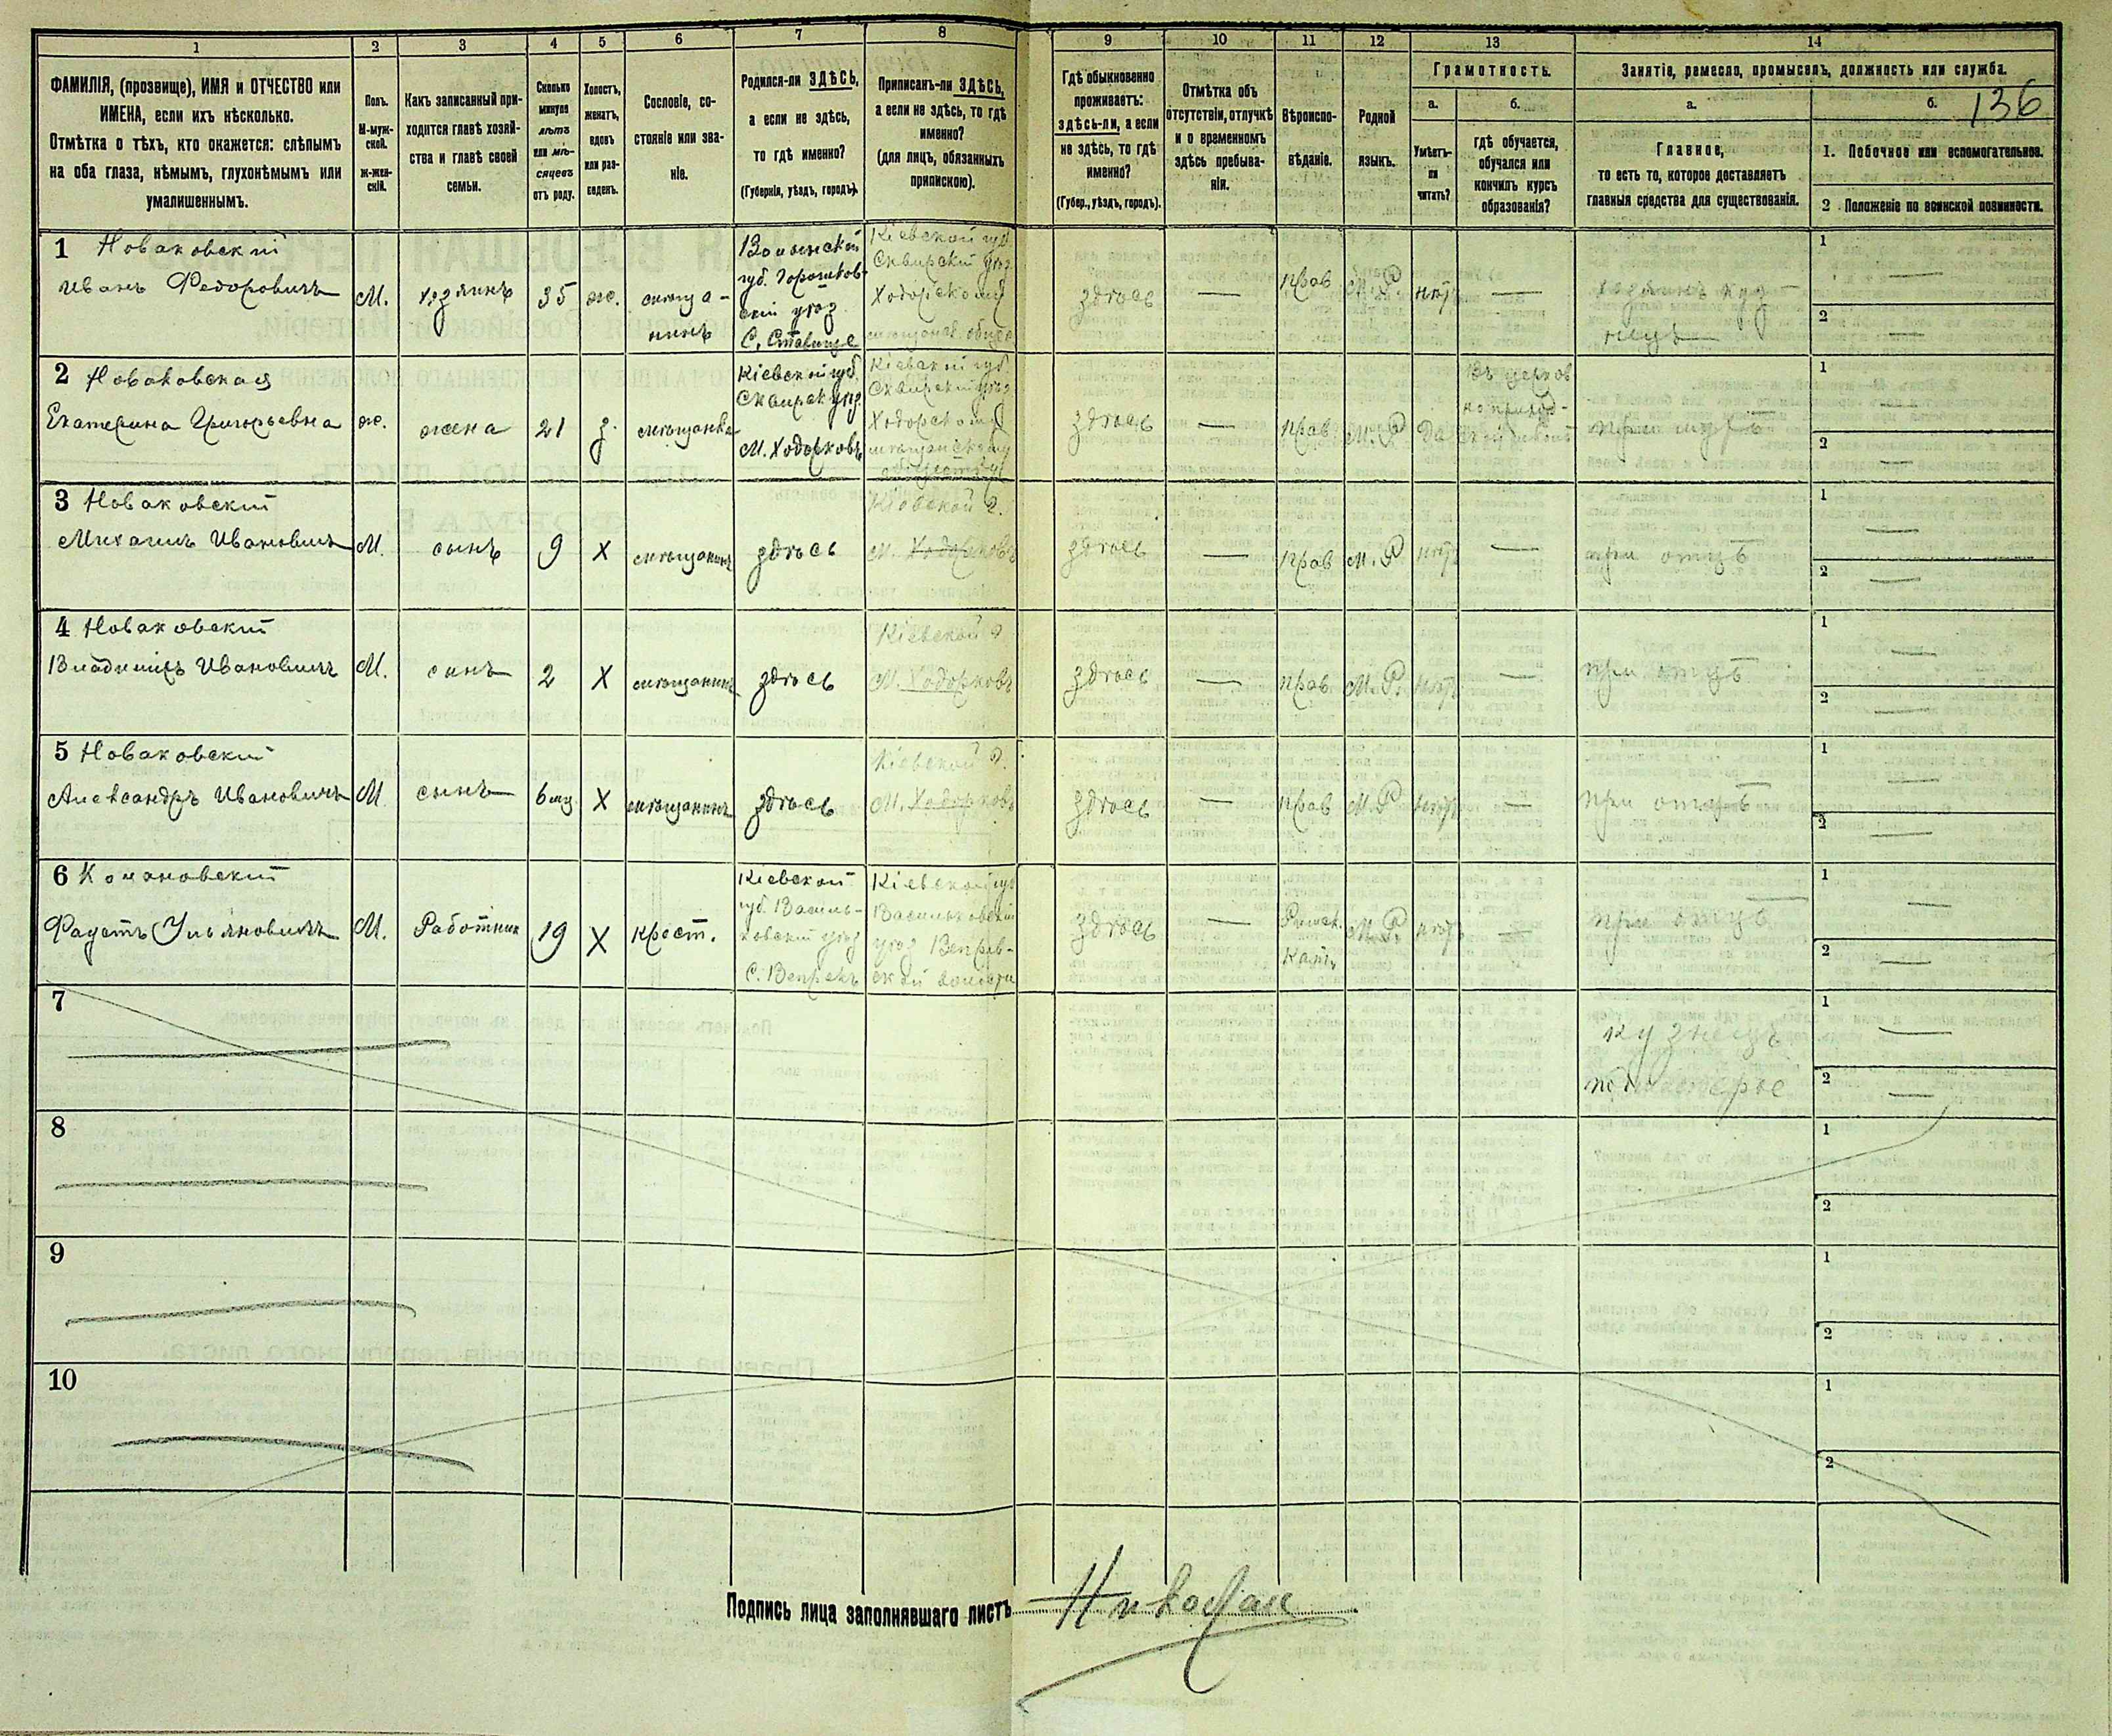 1
2
3
4
5
6
7
8
9
10
11
12
13
14
ФАМИЛІЯ, (прозвище), ИМЯ и ОТЧЕСТВО или
ИМЕНА, если ихъ нѣсколько.
Отмѣтка о тѣхъ, кто окажется: слѣпымъ
на оба глаза, нѣмымъ, глухонѣмымъ или
умалишеннымъ.
Полъ.
М-муж-
ской.
ж-жен-
скій.
Какъ записанный при-
ходится главѣ хозяй-
ства и главѣ своей
семьи.
Сколько
минуло
лѣтъ
или мѣ-
сяцевъ
отъ роду.
Холостъ,
женатъ,
вдовъ
или раз-
веденъ.
Сословіе, со-
стояніе или зва-
ніе.
Родился-ли ЗДѢСЬ,
а если не здѣсь,
то гдѣ именно?
(Губернія, уѣздъ, городъ).
Приписанъ-ли ЗДѢСЬ,
а если не здѣсь, то гдѣ
именно?
(для лицъ, обязанныхъ
припискою).
Гдѣ обыкновенно
проживаетъ:
здѣсь-ли, а если
не здѣсь, то гдѣ
именно?
(Губер., уѣздъ, городъ).
Отмѣтка объ
отсутствіи, отлучкѣ
и о временномъ
здѣсь пребыва-
ніи.
Вѣроиспо-
вѣданіе.
Родной
языкъ.
Грамотность.
а.
Умѣетъ-
ли
читать?
б.
гдѣ обучается,
обучался или
кончилъ курсъ
образованія?
Занятіе, ремесло, промыселъ, должность или служба.
а.
Главное,
то есть то, которое доставляетъ
главныя средства для существованія.
б.
136
1. Побочное или вспомогательное.
2 Положеніе по воинской повинности.
1 Новаковскій
Иванъ Федоровичъ
М.
хозяинъ
35
ж.
мѣща-
нинъ
Волынской
губ.
уѣз
С. Ставище
Кіевской губ
Сквирскій уѣз.
здѣсь
—
прав
М. Р
нѣтъ
—
хозяинъ куз-
нецъ
1
—
2
—
2 Новаковская
Екатерина Григорьевна
ж.
жена
21
з.
мѣщанка
Кіевской губ.
Сквирск уѣз.
М. Ходорковъ
Кіевской губ.
Сквирскій уѣз
здѣсь
—
прав
М. Р
да
Въ церков
но приход-
при мужѣ
1
—
2
—
3 Новаковскій
Михаилъ Ивановичъ
М.
сынъ
9
Х
мѣщанинъ
здѣсь
Кіевской г.
М. Ходорковъ
здѣсь
—
прав
М. Р
нѣтъ
—
при отцѣ
1
—
2
—
4 Новаковскій
Владиміръ Ивановичъ
М.
сынъ
2
Х
мѣщанинъ
здѣсь
Кіевской г
М. Ходорковъ
здѣсь
—
прав.
М. Р.
нѣтъ
—
при отцѣ
1
—
2
—
5 Новаковскій
Александръ Ивановичъ
М
сынъ
6 мц
Х
мѣщанинъ
здѣсь
Кіевской г.
М. Ходорковъ
здѣсь
—
прав
М. Р
нѣтъ
—
при отцѣ
1
—
2
—
6
Ульяновичъ
М.
Работник
19
Х
крест.
Кіевской
губ. Василь-
ковскій уѣз
С. Вепрекъ
Кіевской губ
Васильковскій
уѣз Вепрев-
ской волости
здѣсь
—
Римск.
Кат.
М. Р.
нѣтъ
—
при отцѣ
1
—
2
—
7
кузнецъ
1
—
2
—
8
1
2
9
1
2
10
1
2
Подпись лица заполнявшаго листъ